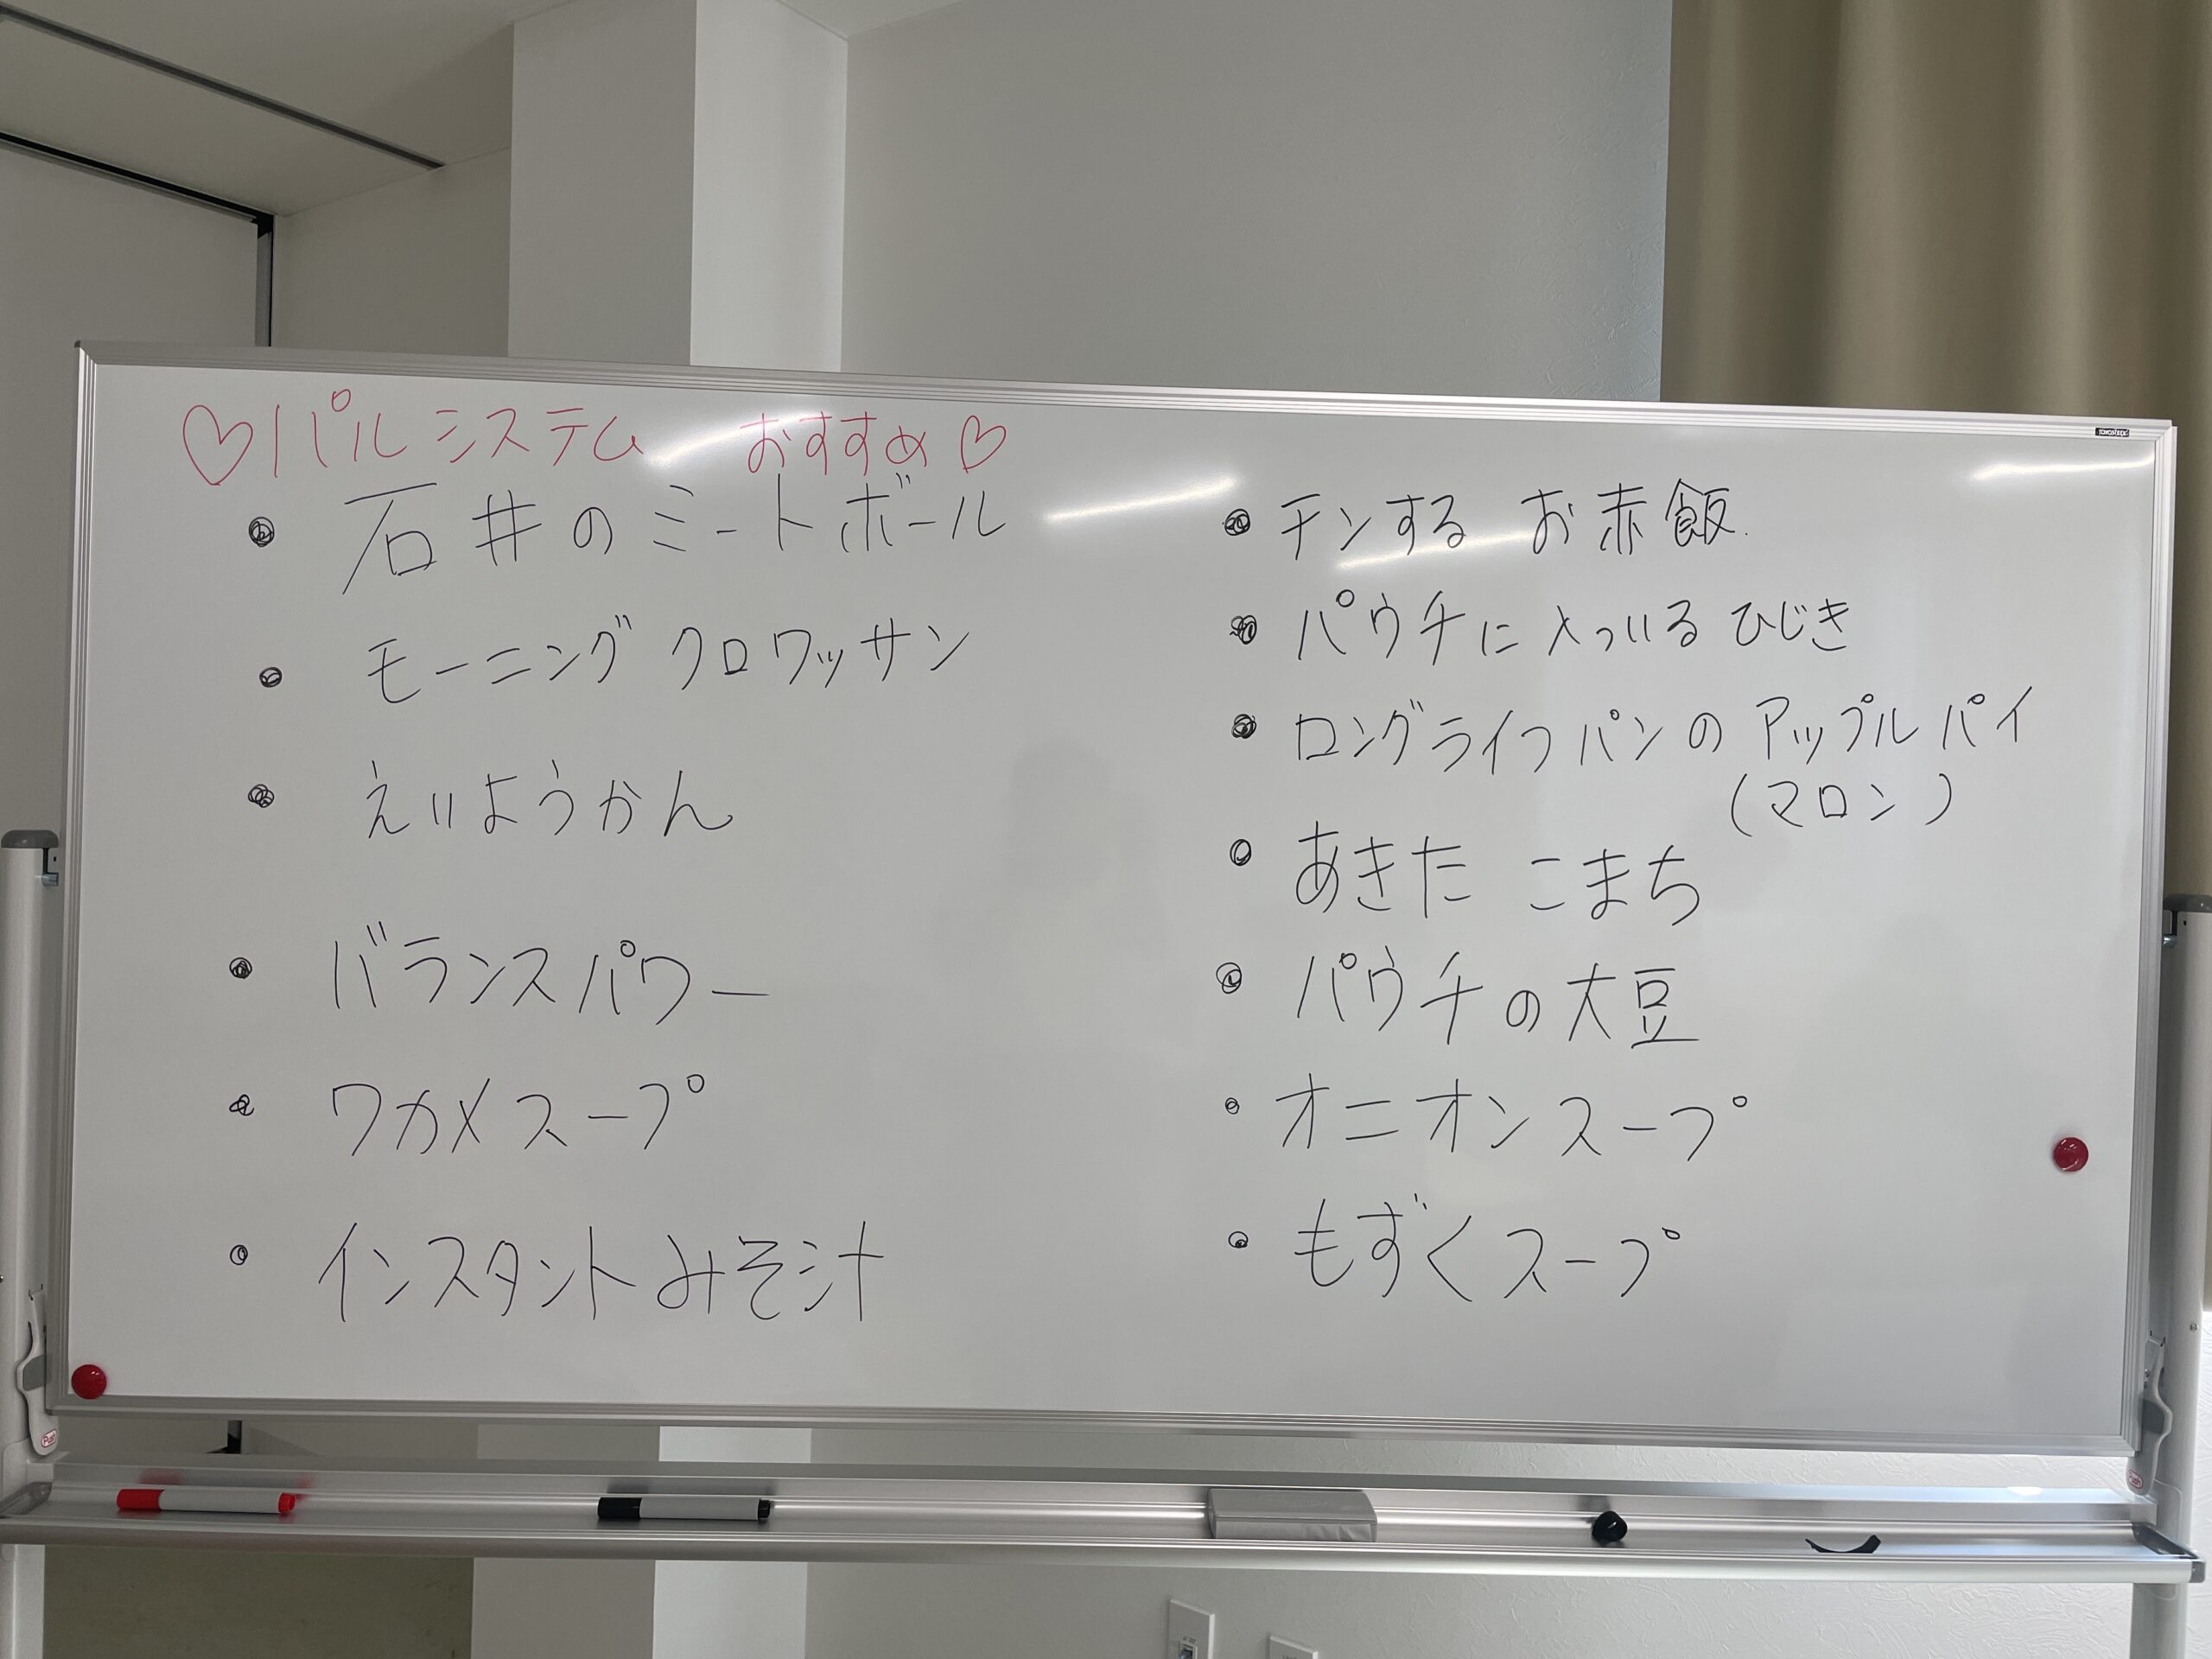 ♡パルシステム おすすめ♡
• 石井のミートボール
• モーニングクロワッサン
• えいようかん
• バランスパワー
• ワカメスープ
• インスタントみそ汁
• チンする お赤飯
• パウチに入っいる ひじき
• ロングライフパンの アップルパイ
(マロン)
• あきた こまち
• パウチの大豆
• オニオンスープ
• もずくスープ
Push
Push